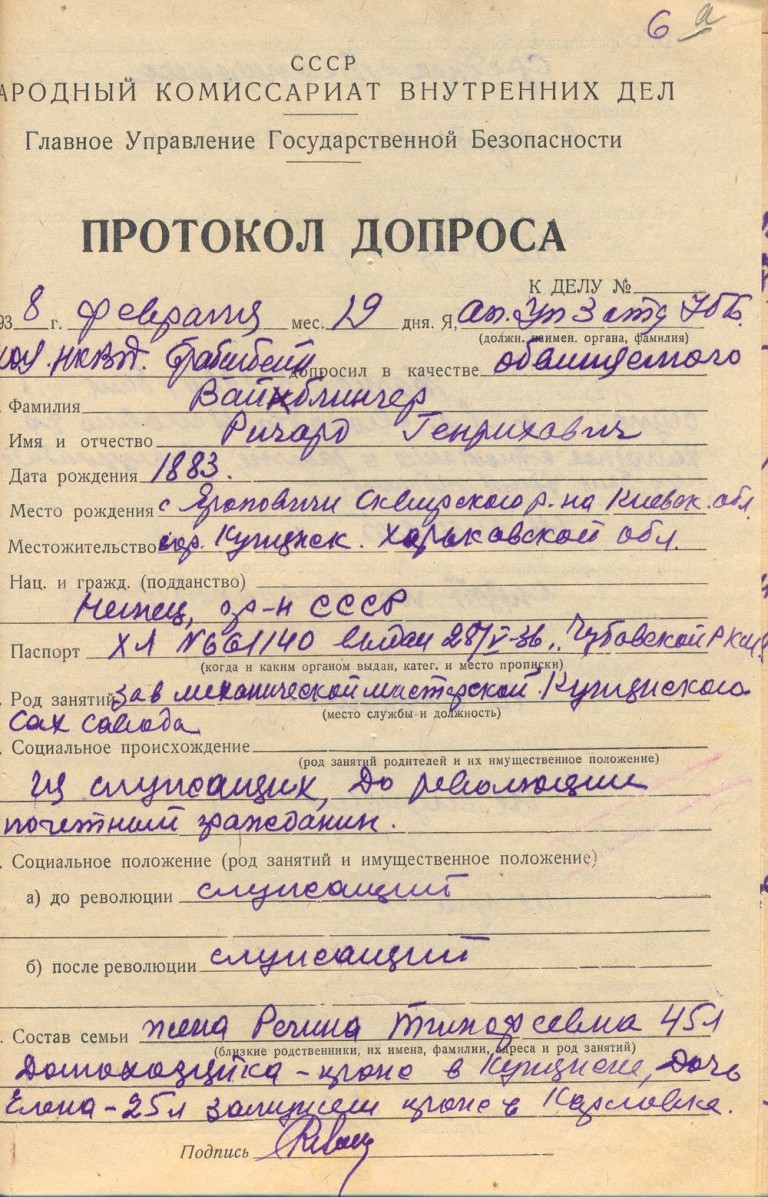 6 а
СССР
АРОДНЫЙ КОМИССАРИАТ ВНУТРЕННИХ ДЕЛ
Главное Управление Государственной Безопасности
ПРОТОКОЛ ДОПРОСА
К ДЕЛУ №
93 8 г. февраля мес. 19 дня. Я, оп. Уп 3 отд УГБ.
(должн. наимен. органа, фамилия)
НКВД. допросил в качестве обвиняемого
Фамилия Вайнблингер
Имя и отчество Ричард Генрихович
Дата рождения 1883.
Место рождения с Яроповичи Сквирского р-на Киевск. обл.
Местожительство гор. Купянск. Харьковской обл.
Нац. и гражд. (подданство)
Немец, гр-н СССР
Паспорт ХЛ № 661140 выдан 28/V-36.
(когда и каким органом выдан, катег. и место прописки)
Род занятий зав механической мастерской Купянского
(место службы и должность)
Сах завода
Социальное происхождение
(род занятий родителей и их имущественное положение)
из служащих, До революции
почетный гражданин.
Социальное положение (род занятий и имущественное положение)
а) до революции служащий
б) после революции служащий
Состав семьи жена Регина 45 л
(близкие родственники, их имена, фамилии, адреса и род занятий)
Домохозяйка - прож в Купянске, Дочь
Елена - 25 л замужем прож в Карловке.
Подпись